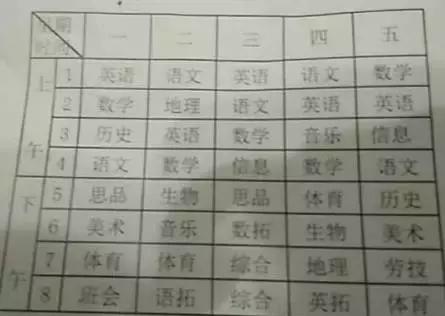 星期 一 二 三 四 五
时间
上午
1 英语 语文 英语 语文 数学
2 数学 地理 语文 英语 英语
3 历史 英语 数学 音乐 信息
4 语文 数学 信息 数学 语文
下午
5 思品 生物 思品 体育 历史
6 美术 音乐 数拓 生物 美术
7 体育 体育 综合 地理 劳技
8 班会 语拓 综合 英拓 体育